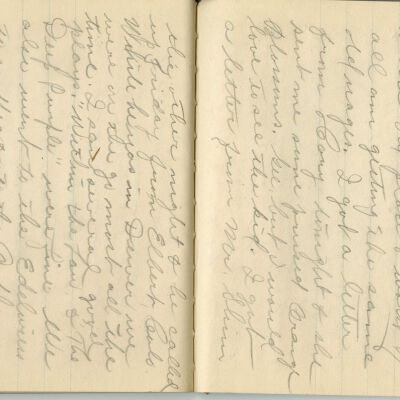 place &
all am getting the same
old wages. I got a letter
from Mary tonight & she
sent me some pressed orange
blossoms. Gee but I would
love to see the kid. I got
a letter from Mr.
the other night & he called
up Friday from Elbert
While he was in Denver we
were on the go most all the
time. I saw several good
plays. "Within the Law" & "The
Deep Purple" were fine. We
also went to the Edelweiss